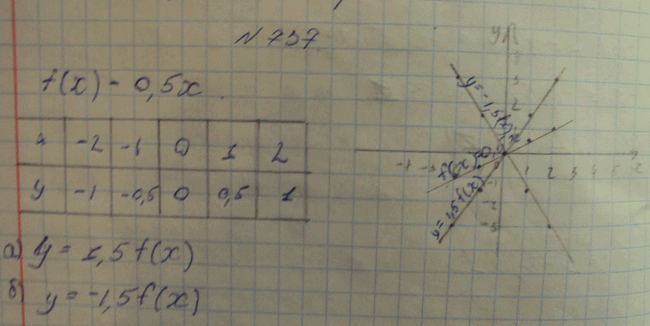 N737
f(x) = 0,5x
x -2 -1 0 1 2
y -1 -0,5 0 0,5 1
а) y = 1,5f(x)
б) y = -1,5f(x)
y
3
2
y=-1,5f(x)
-1
1 2 3 4 5
-1
-2
-3
y=1,5f(x)